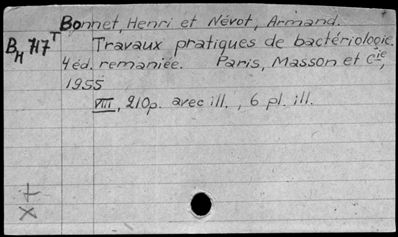 Bonnet, Henri et Névot, Armand.
BH 717T Travaux pratiques de bactériologie.
4 éd. remaniée. Paris, Masson et Cie,
1955
VIII, 210p. avec ill., 6 pl. ill.